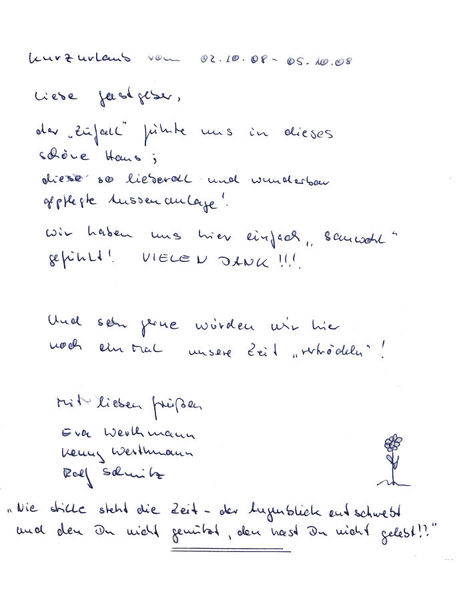 Kurzurlaub vom 02.10.08 - 05.10.08
Liebe Gastgeber,
der "Zufall" führte uns in dieses
schöne Haus;
diese so liebevoll und wunderbar
gepflegte Aussenanlage!
Wir haben uns hier einfach "sauwohl"
gefühlt! VIELEN DANK !!!
Und sehr gerne würden wir hier
noch einmal unsere Zeit "vertrödeln"!
Mit lieben Grüßen
Eva Werthmann
Werthmann
Rolf Schmitz
"Nie stille steht die Zeit - der Augenblick entschwebt
und den Du nicht genützt, den hast Du nicht gelebt!?"